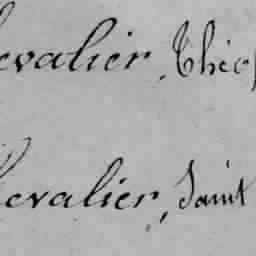 hevalier, Théop
hevalier, Saint